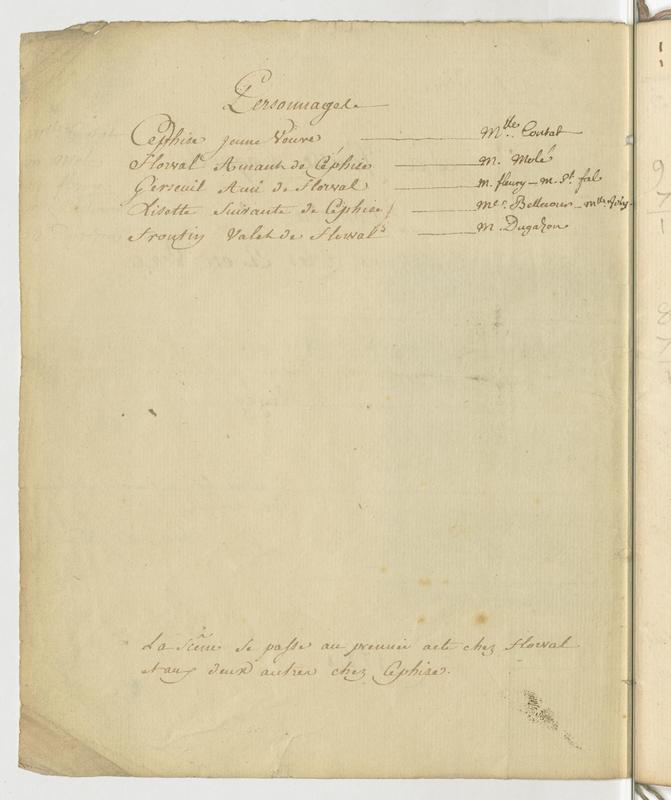 Personnages
Céphise jeune Veuve — Mlle. Contat
Florval Amant de Céphise — M. Molé
Gerseuil Ami de Florval — M. fleury – M. St. fal
Lisotte Suivante de Céphise — Me. Bellecour – Mlle Joly
Frontin Valet de Florval — M. Dugazon
La Scène se passe au premier acte chez Florval
et aux deux autres chez Céphise.